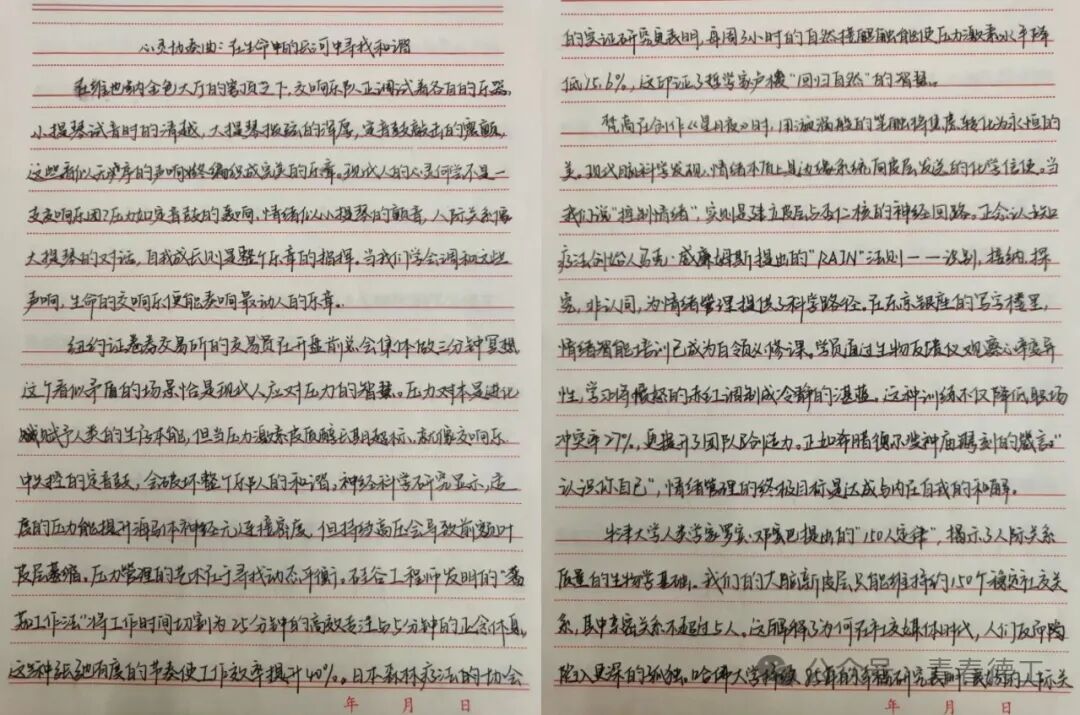 心灵协奏曲：在生命中的长河中寻找和谐
在维也纳金色大厅的穹顶之下，交响乐队正调试着各自的乐器。
小提琴试音时的清越，大提琴拨弦的浑厚，定音鼓敲击的震颤，
这些看似无序的声响终将编织成完美的乐章。现代人的心灵何尝不是一
支交响乐团？压力如定音鼓的轰响，情绪似小提琴的颤音，人际关系像
大提琴的对话，自我成长则是整个乐章的指挥。当我们学会调和这些
声响，生命的交响乐便能奏响最动人的乐章。
纽约证券交易所的交易员在开盘前总会集体做三分钟冥想，
这个看似矛盾的场景恰是现代人应对压力的智慧。压力对本是进化
赋予人类的生存本能，但当压力激素皮质醇长期超标，就像交响乐
中失控的定音鼓，会破坏整个乐队的和谐。神经科学研究显示，适
度的压力能提升海马体神经元连接密度，但持续高压会导致前额叶
皮层萎缩。压力管理的艺术在于寻找动态平衡。硅谷工程师发明的"番
茄工作法"将工作时间切割为25分钟的高效专注与5分钟的正念休息，
这种张弛有度的节奏使工作效率提升40%。日本森林疗法的协会
年 月 日
的实证研究表明，每周3小时的自然接触能使压力激素水平降
低15.6%，这印证了哲学家卢梭"回归自然"的智慧。
梵高在创作《星月夜》时，用漩涡般的笔触将焦虑转化为永恒的
美。现代脑科学发现，情绪本质上是边缘系统向皮层发送的化学信使。当
我们说"控制情绪"，实则是建立皮层与杏仁核的神经回路。正念认知
疗法创始人马克·威廉姆斯提出的"RAIN"法则——识别，接纳，探
究，非认同，为情绪管理提供了科学路径。在东京银座的写字楼里，
情绪智能培训已成为白领必修课。学员通过生物反馈仪观察心率变异
性，学习将愤怒的赤红调制成冷静的湛蓝。这种训练不仅降低职场
冲突率27%，更提升了团队创造力。正如希腊德尔斐神庙镌刻的箴言"
认识你自己"，情绪管理的终极目标是达成与内在自我的和解。
牛津大学人类学家罗宾·邓巴提出的"150人定律"，揭示了人际关系
质量的生物学基础。我们的大脑新皮层只能维持约150个稳定社交关
系，其中亲密关系不超过5人。这解释了为何在社交媒体时代，人们反而陷
入更深的孤独。哈佛大学持续85年的幸福研究表明，最好的人际关
年 月 日
公众号·青春德工